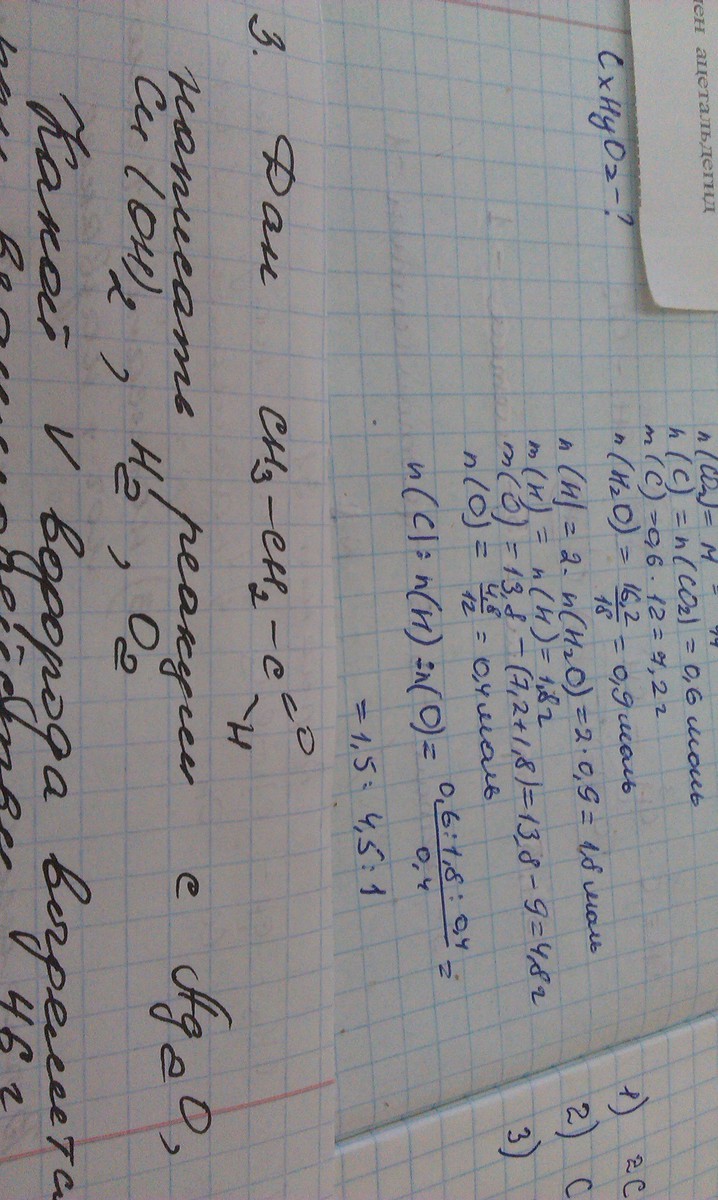 ацетальдегид
CxHyOz-?
n(C) = n(CO2) = 0,6 моль
m(C) = 0,6 · 12 = 7,2 г
n(H2O) = 16,2/18 = 0,9 моль
n(H) = 2 · n(H2O) = 2 · 0,9 = 1,8 моль
m(H) = n(H) = 1,8 г
m(O) = 13,8 - (7,2+1,8) = 13,8 - 9 = 4,8 г
n(O) = 4,8/12 = 0,4 моль
n(C) : n(H) : n(O) = 0,6 : 1,8 : 0,4 / 0,4 =
= 1,5 : 4,5 : 1
1) 2C
2) C
3)
3. Дан CH3-CH2-C=O-H
написать реакции с Ag2O,
Cu(OH)2, H2, O2
Какой V водорода
46 г